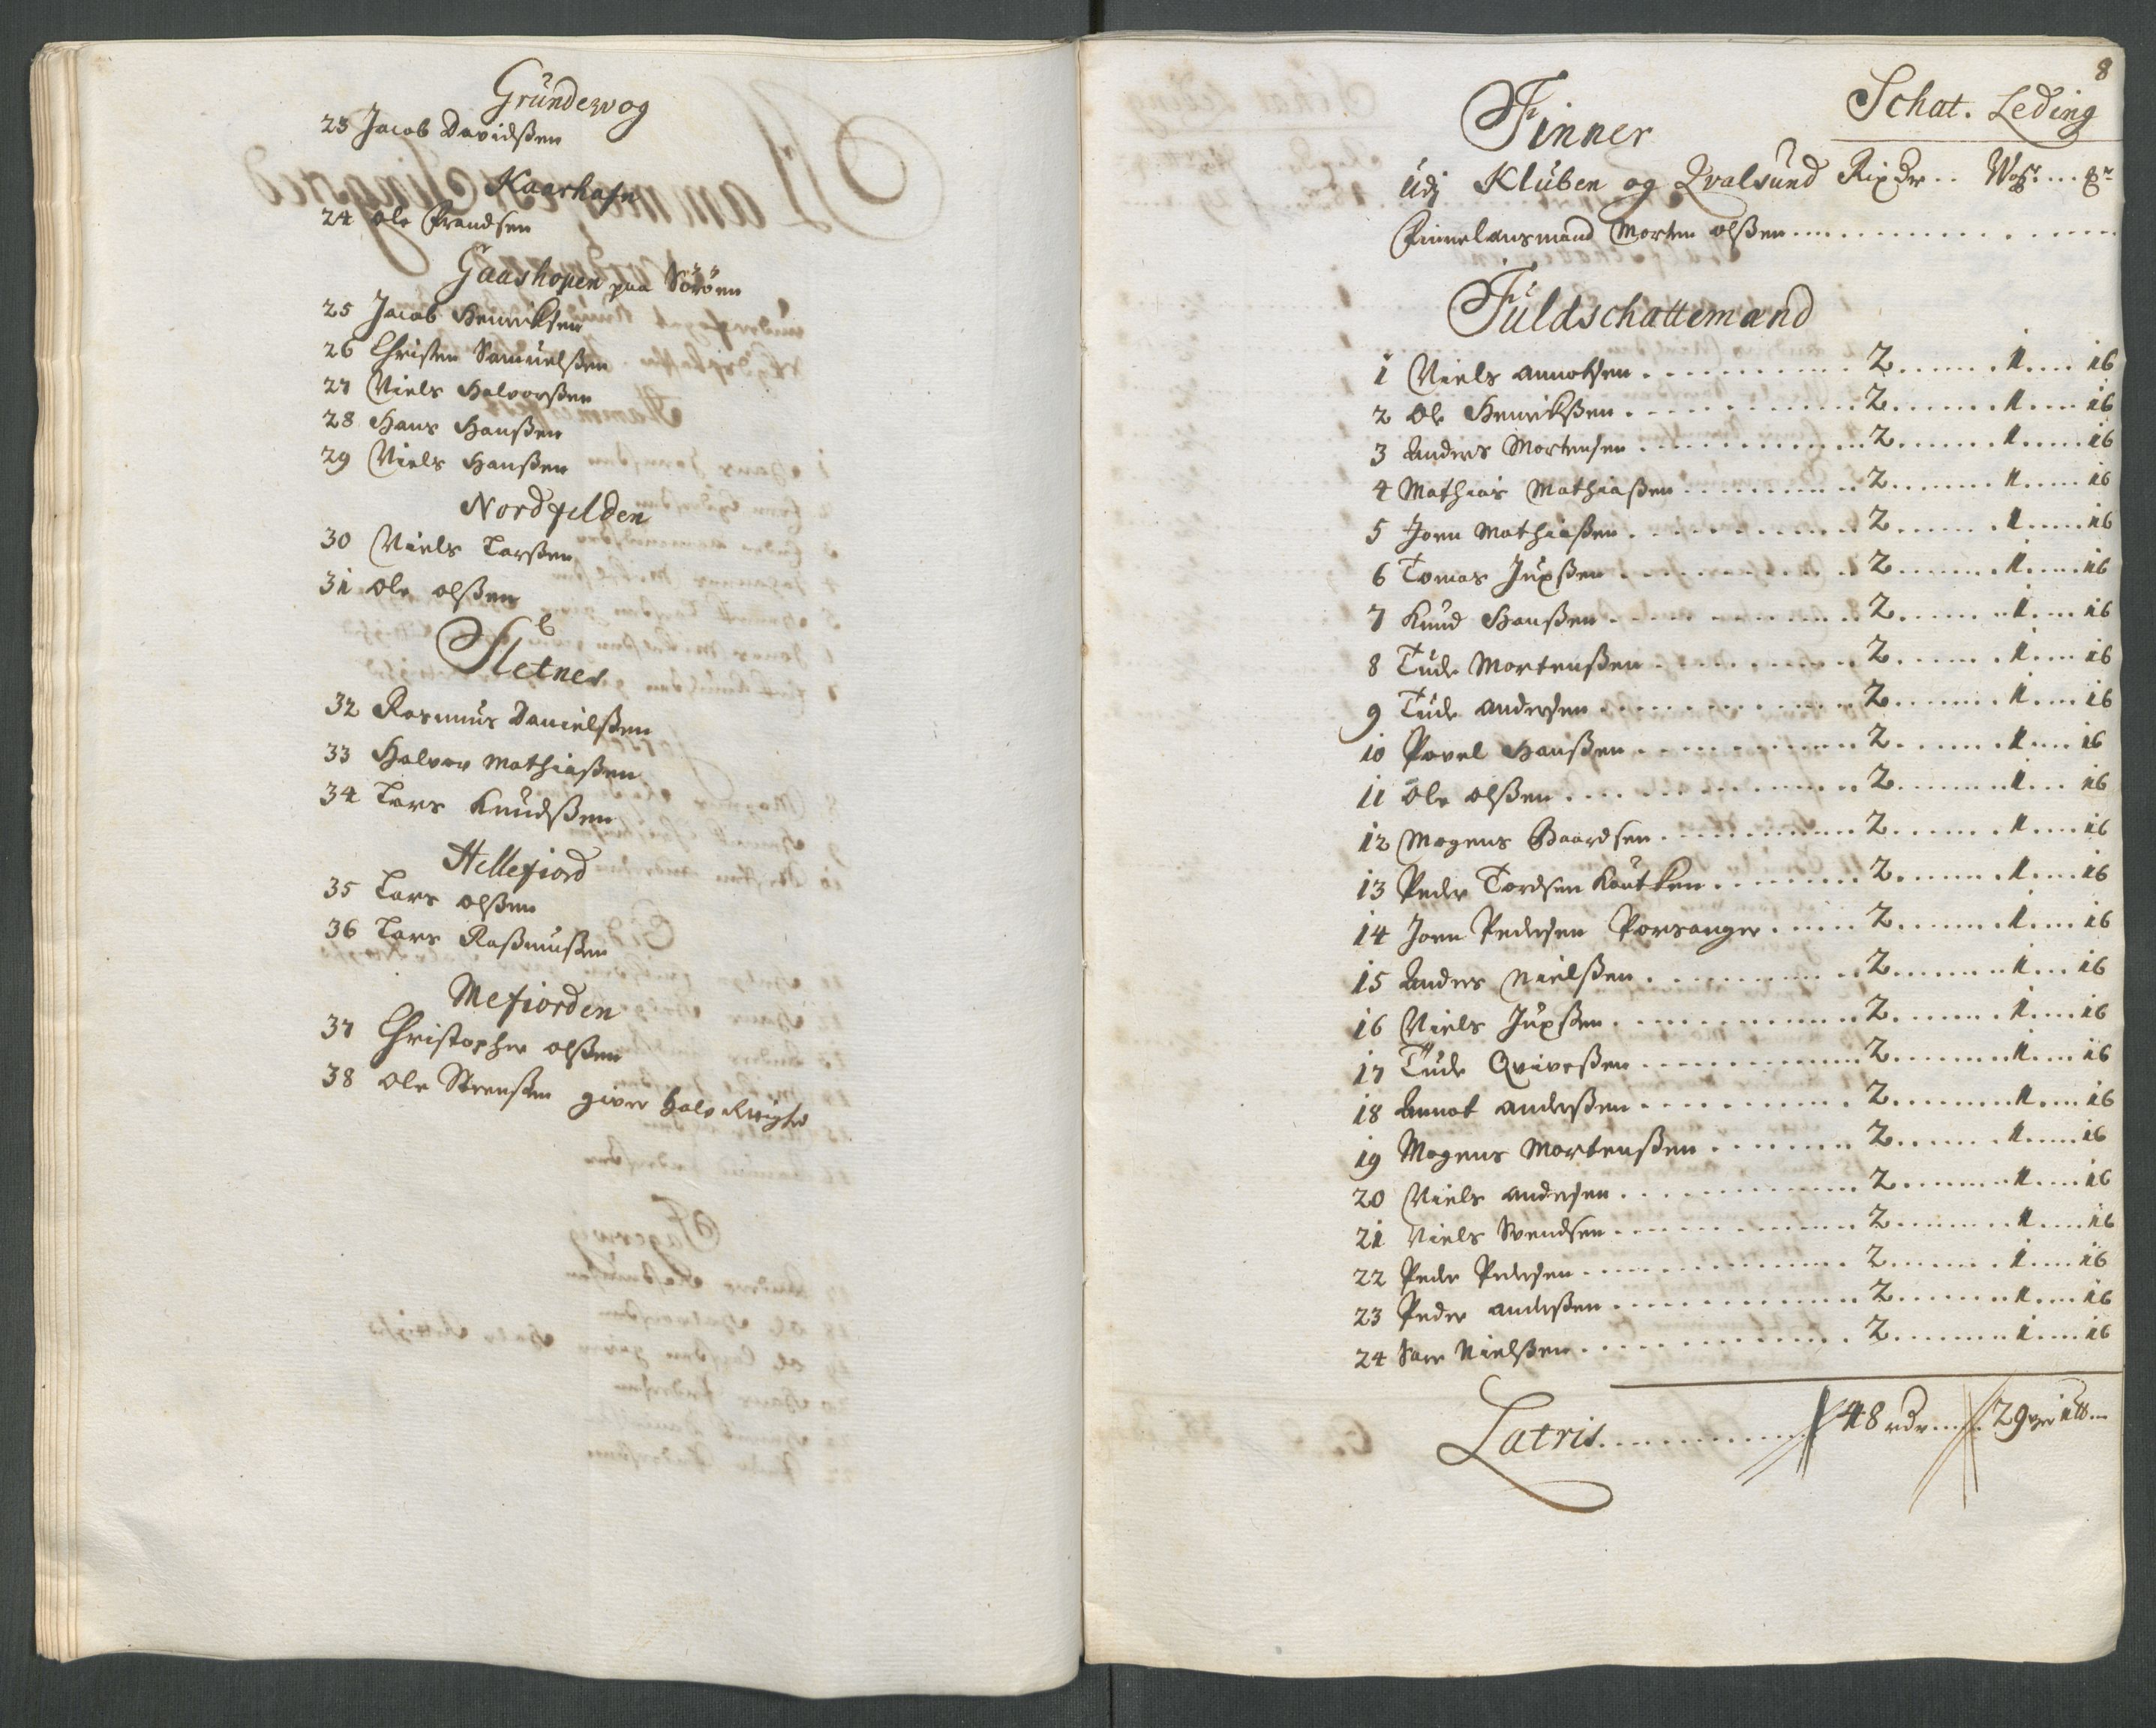 Grundevog
23 Jacob Davidßen
Kaarhafn
24 Ole Frandsen
Gaashopen paa Söröen
25 Jacob Henrichsen
26 Christen Samuelßen
27 Niels Halvorßen
28 Hans Hanßen
29 Niels Hanßen
Nordfelden
30 Niels Larßen
31 Ole olßen
Sletnes
32 Rasmus Danielßen
33 Halvor Mathiaßen
34 Lars Knudßen
Hellefiord
35 Lars olßen
36 Lars Raßmußen
Mefiorden
37 Christopher olßen
38 Ole Stensen giver halv Rettighd
8
Finner
Schat. Leding
Udj Kluben og Qvalsund Rixdr .. Wog ... pr
Finnelansmand Morten olßen
Fuldschattemænd
1 Niels Annotsen 2 1 16
2 Ole Henrikßen 2 1 16
3 Anders Mortensen 2 1 16
4 Mathias Mathiaßen 2 1 16
5 Joen Mathiaßen 2 1 16
6 Tomas Jupßen 2 1 16
7 Knud Hanßen 2 1 16
8 Tude Mortenßen 2 1 16
9 Tude Andersen 2 1 16
10 Povel Hanßen 2 1 16
11 Ole olßen 2 1 16
12 Mogens Baardsen 2 1 16
13 Peder Tordsen Koutken 2 1 16
14 Joen Pedersen Porsanger 2 1 16
15 Anders Nielßen 2 1 16
16 Niels Jupßen 2 1 16
17 Tude Qviveßen 2 1 16
18 Annot Anderßen 2 1 16
19 Mogens Mortenßen 2 1 16
20 Niels Andersen 2 1 16
21 Niels Svendsen 2 1 16
22 Peder Pedersen 2 1 16
23 Peder Anderßen 2 1 16
24 Sare Nielßen 2 1 16
Latris 48 rdr 29